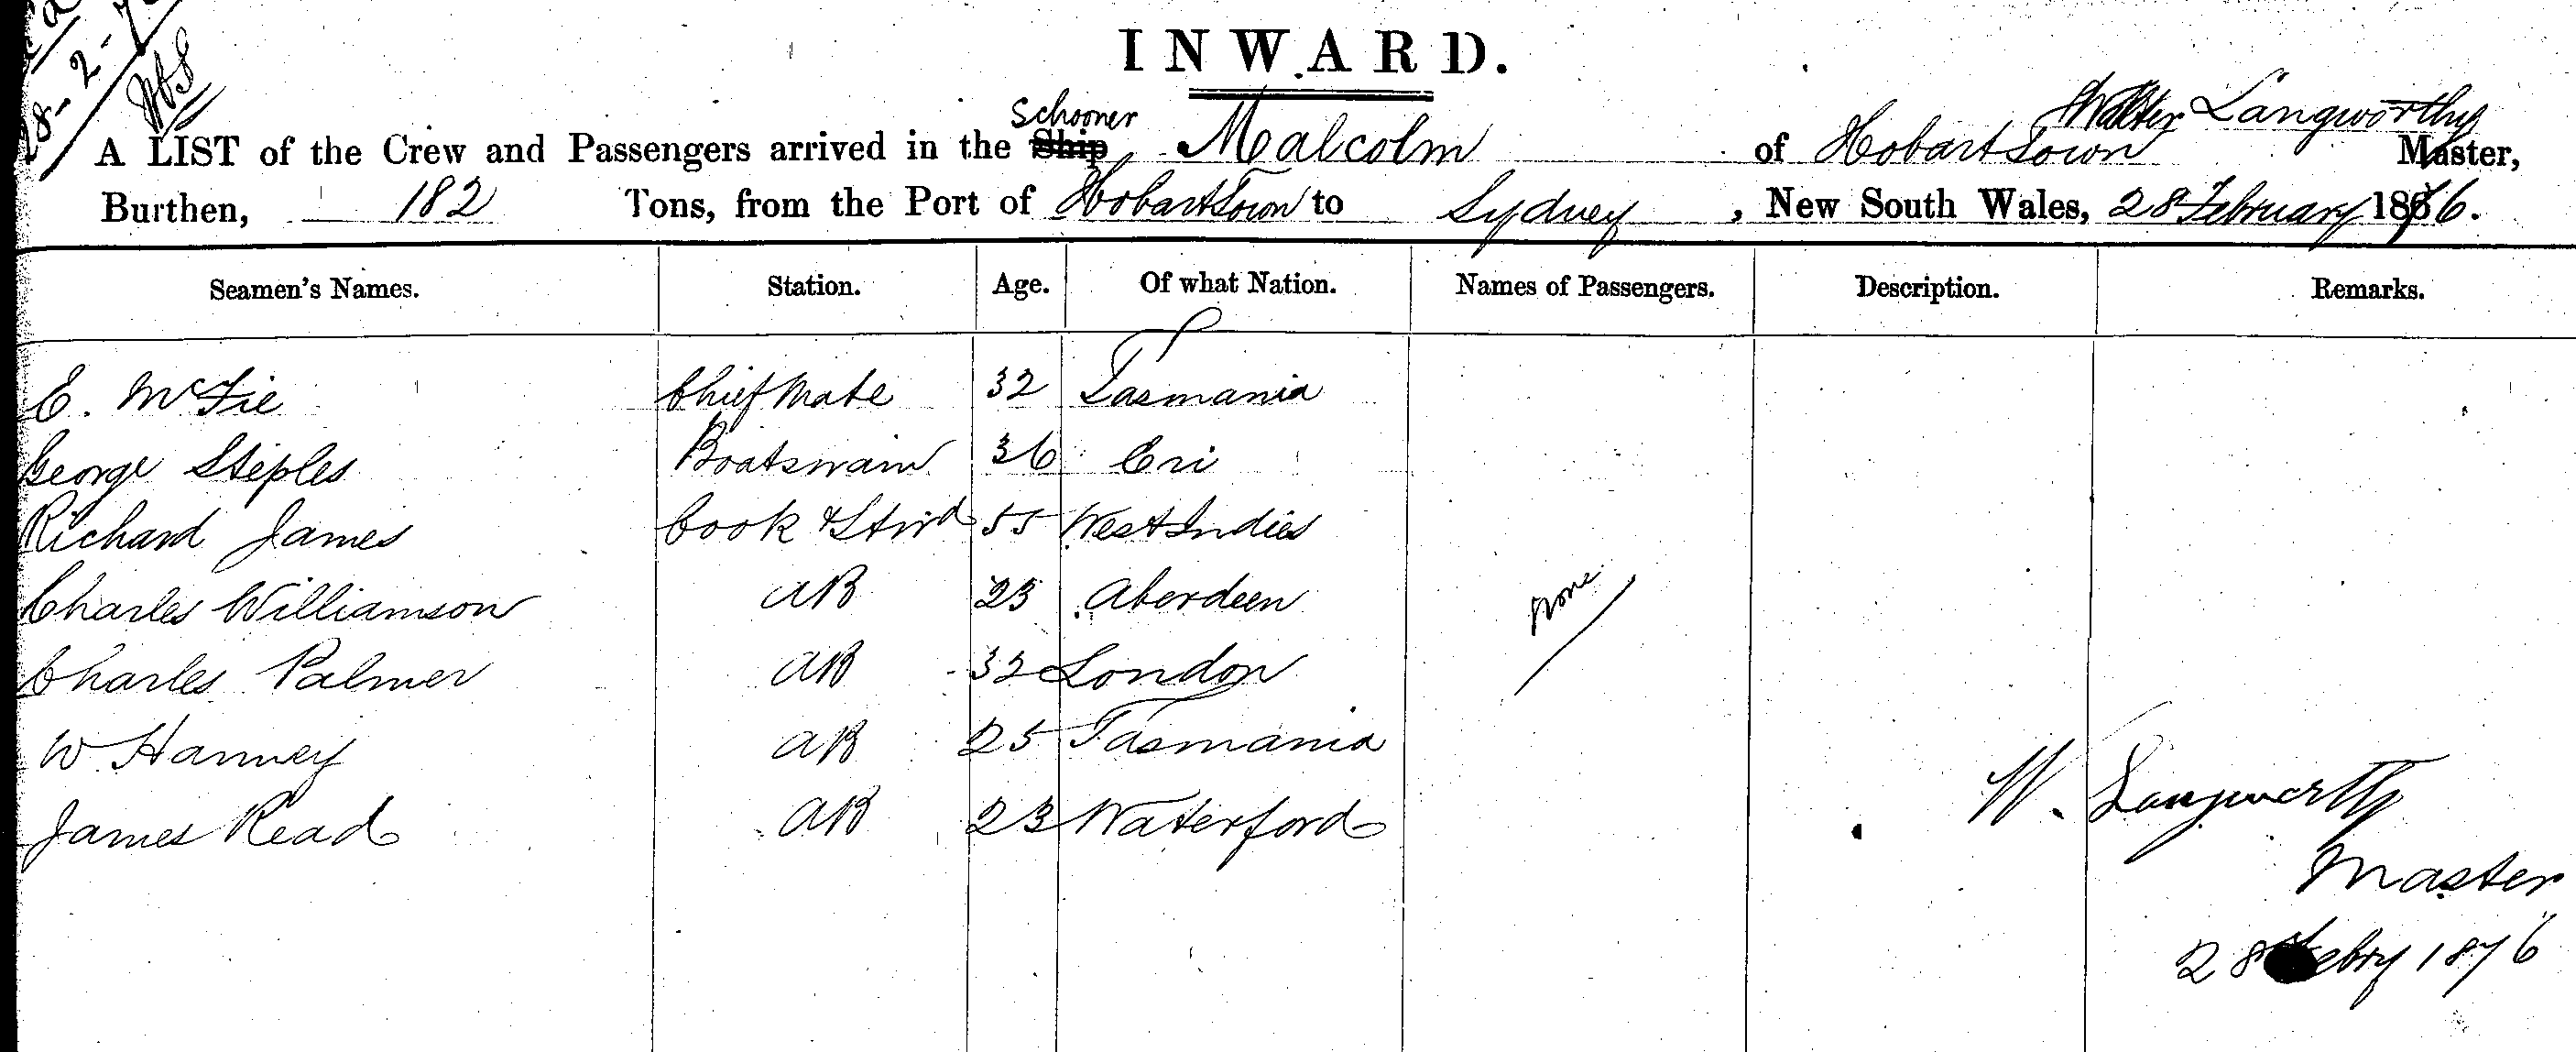 28-2-7
INWARD.
Schooner Walter Langworthy
A LIST of the Crew and Passengers arrived in the Ship Malcolm of Hobart Town Master,
Burthen, 182 Tons, from the Port of Hobart Town to Sydney, New South Wales, 28 February 1876.
Seamen's Names. Station. Age. Of what Nation. Names of Passengers. Description. Remarks.
E. McFie Chief Mate 32 Tasmania
George Steples Boatswain 36 Eri
Richard James Cook & Stwd 55 West Indies
Charles Williamson AB 23 Aberdeen none
Charles Palmer AB 32 London
W. Hanney AB 25 Tasmania
James Read AB 23 Waterford
W. Langworthy
Master
28 Febry 1876